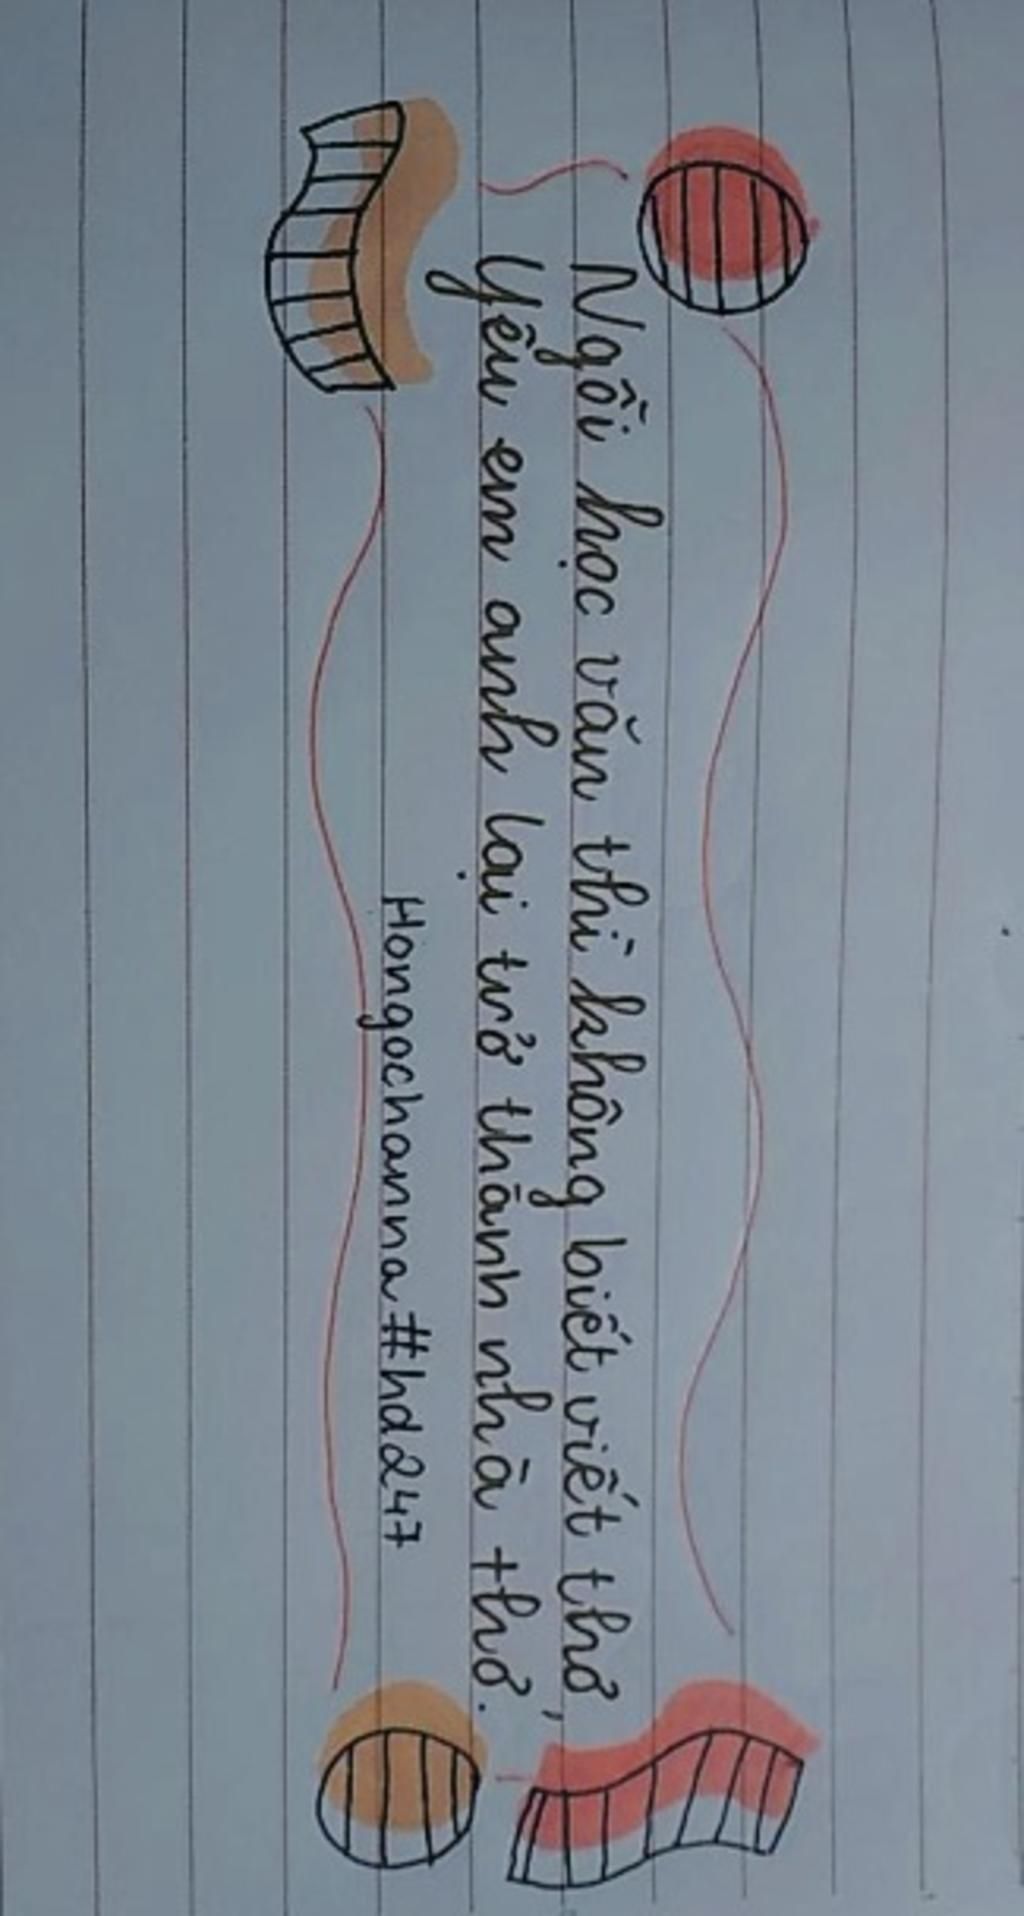 Ngồi học văn thì không biết viết thơ,
Yêu em anh lại trở thành nhà thơ.
Hongochanna#hd247